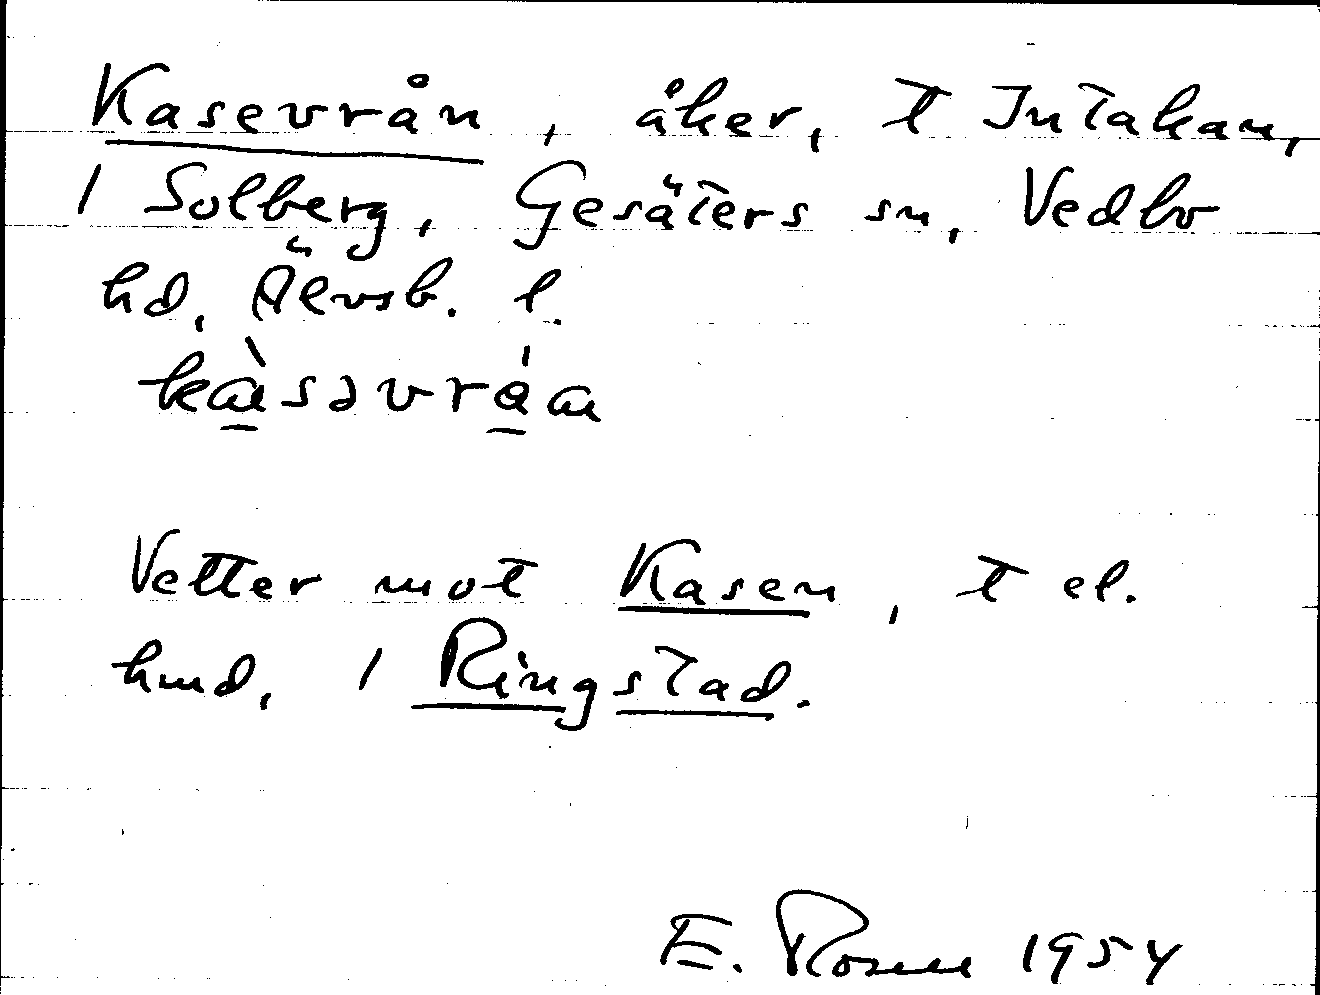 Kasevrån, åker, t Intakan,
1 Solberg, Gesäters sn, Vedbo
hd, Älvsb. l.
Vetter mot Kasen, t el.
hmd, 1 Ringstad.
E. Rosell 1954